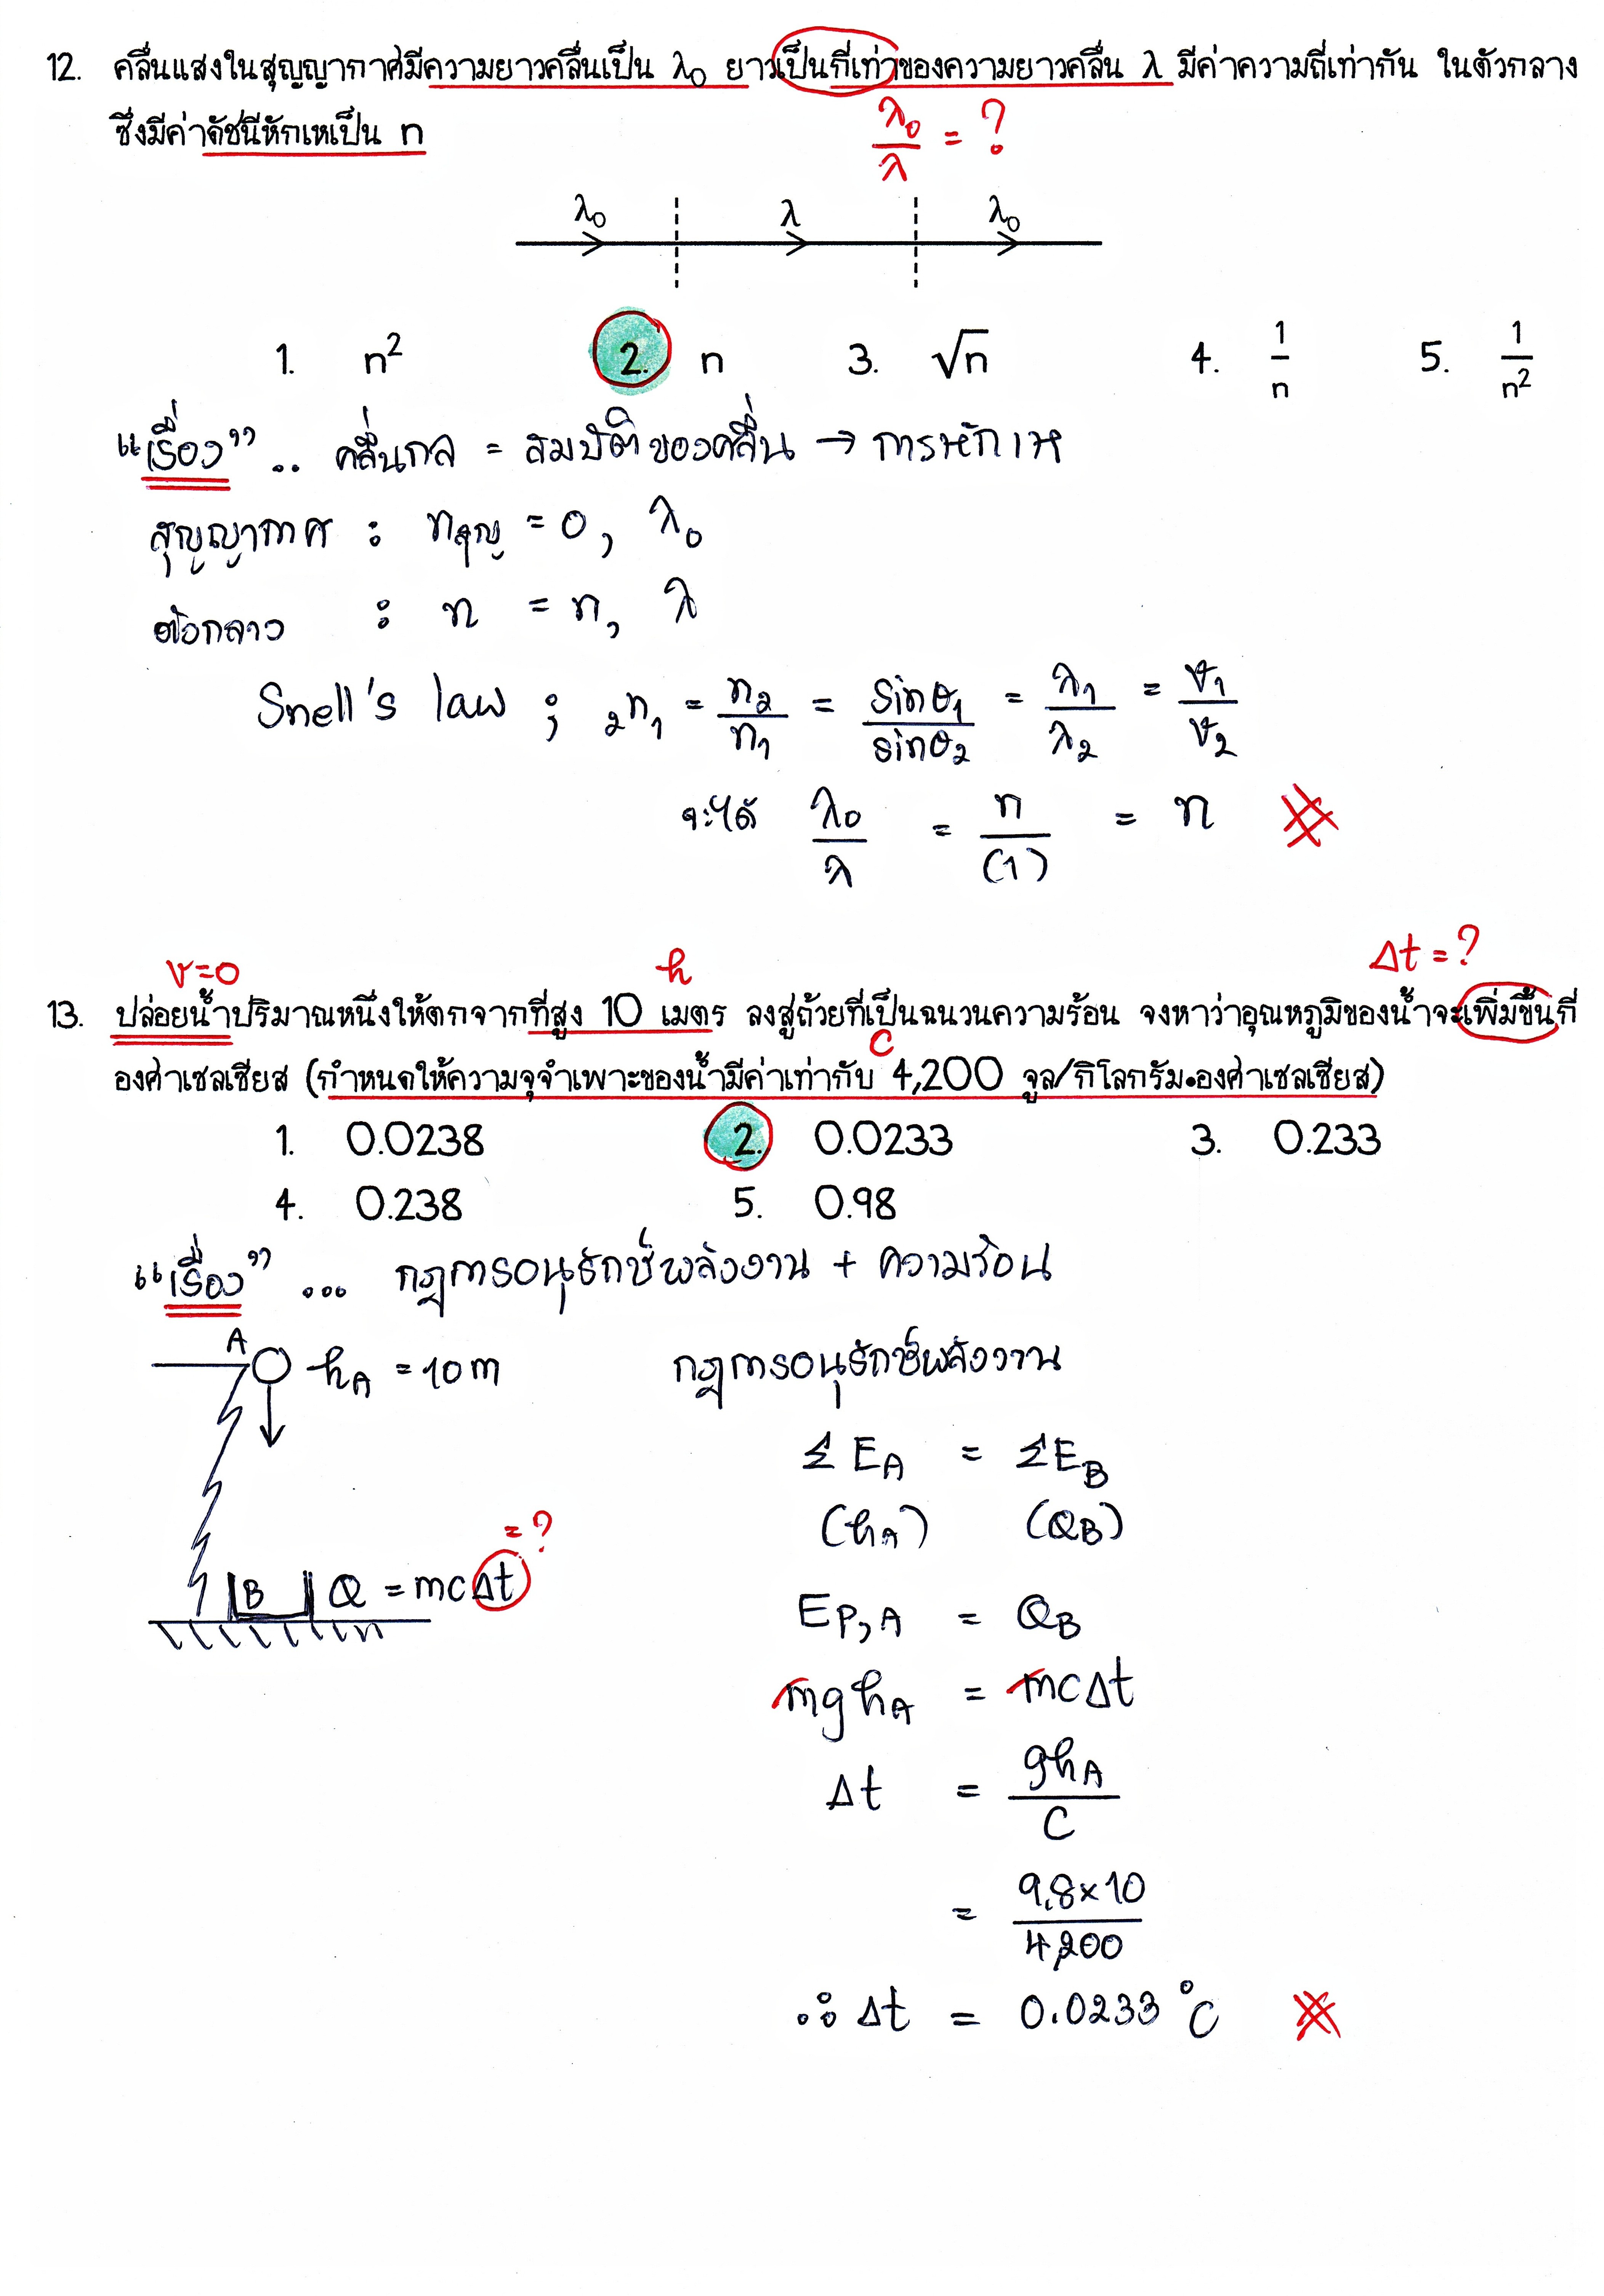 12. คลื่นแสงในสุญญากาศมีความยาวคลื่นเป็น λ₀ ยาวเป็นกี่เท่าของความยาวคลื่น λ มีค่าความถี่เท่ากัน ในตัวกลาง
ซึ่งมีค่าดัชนีหักเหเป็น n
λ₀/λ = ?
λ₀ λ λ₀
1. n² 2. n 3. √n 4. 1/n 5. 1/n²
"เรื่อง" .. คลื่นกล = สมบัติของคลื่น → การหักเห
สุญญากาศ : nสุญ = 0, λ₀
ตัวกลาง : n = n, λ
Snell's law ; ₂n₁ = n₂/n₁ = sinθ₁/sinθ₂ = λ₁/λ₂ = v₁/v₂
จะได้ λ₀/λ = n/(1) = n
v=0 h Δt = ?
13. ปล่อยน้ำปริมาณหนึ่งให้ตกจากที่สูง 10 เมตร ลงสู่ถ้วยที่เป็นฉนวนความร้อน จงหาว่าอุณหภูมิของน้ำจะเพิ่มขึ้นกี่
c
องศาเซลเซียส (กำหนดให้ความจุจำเพาะของน้ำมีค่าเท่ากับ 4,200 จูล/กิโลกรัม•องศาเซลเซียส)
1. 0.0238 2. 0.0233 3. 0.233
4. 0.238 5. 0.98
"เรื่อง" ... กฎการอนุรักษ์พลังงาน + ความร้อน
A hA = 10 m
กฎการอนุรักษ์พลังงาน
ΣEA = ΣEB
(hA) (QB)
= ?
B Q = mcΔt
EP,A = QB
mghA = mcΔt
Δt = ghA/C
= 9.8×10/4,200
∴ Δt = 0.0233 °C